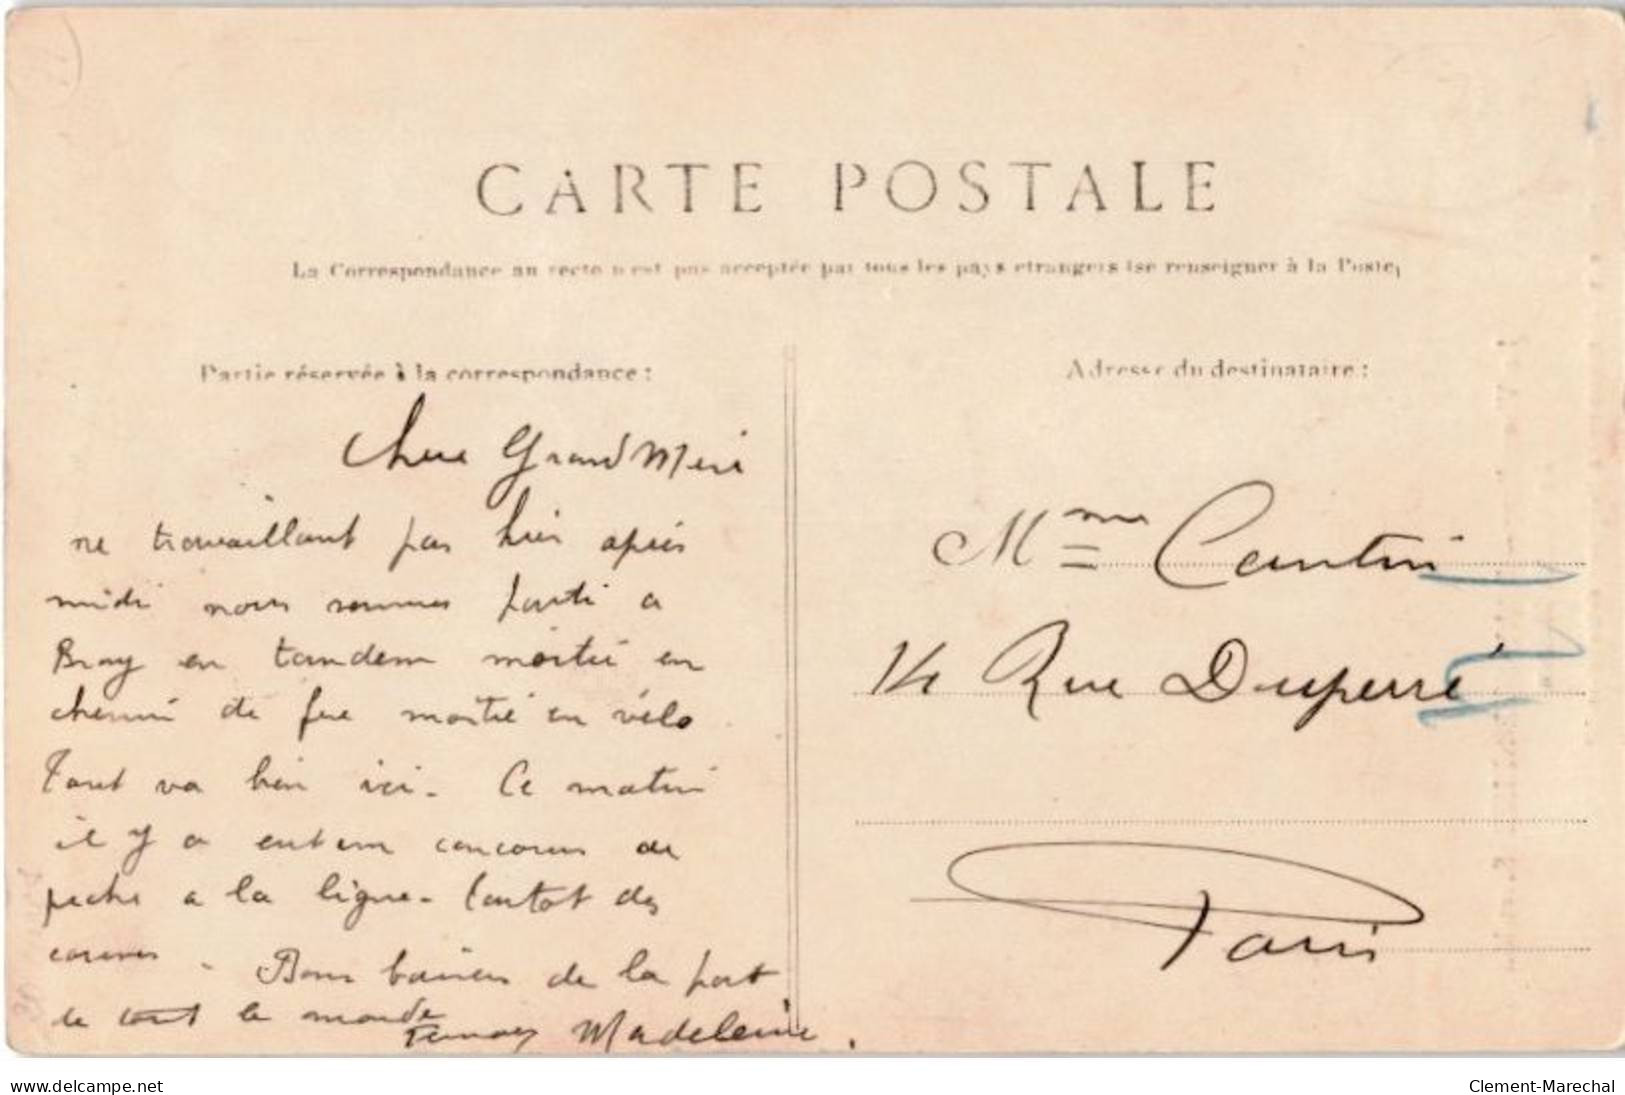 CARTE POSTALE
La Correspondance au recto n'est pas acceptée par tous les pays étrangers (se renseigner à la Poste)
Partie réservée à la correspondance :
Chere Grand Mere
ne travaillant pas hier après
midi nous sommes parti a
Bray en tandem moitié en
chemin de fer moitié en vélo
Tout va bien ici. Ce matin
il y a eut un concours de
peche a la ligne. tantot des
courses. Bons baisers de la part
de tout le monde
Madeleine.
Adresse du destinataire :
Mme Cantin
14 Rue Duperré
Paris
www.delcampe.net
Clement-Marechal